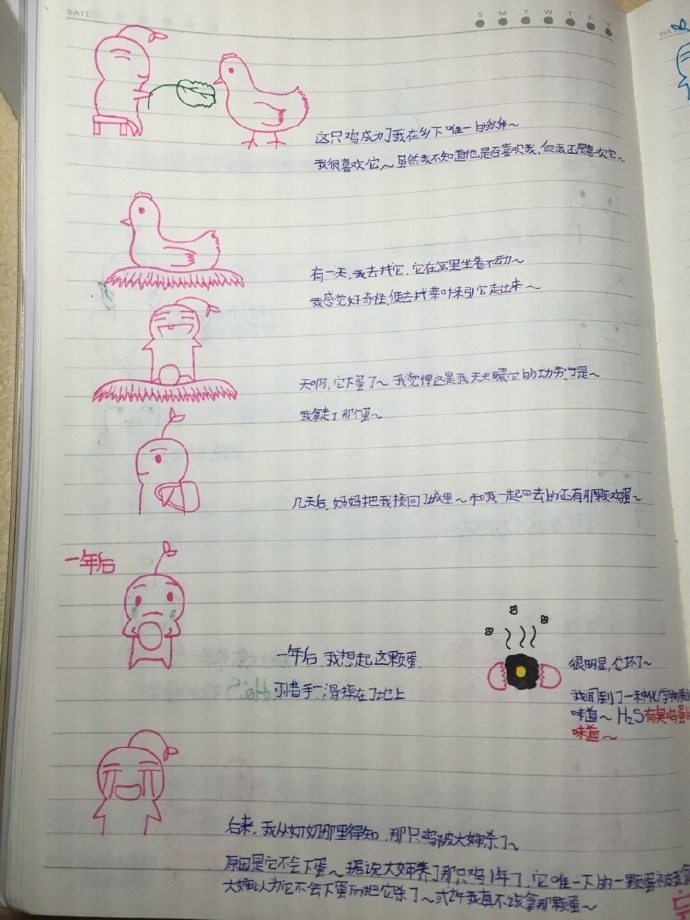 DATE
S M T W T F S
这只鸡成为了我在乡下唯一的伙伴~
我很喜欢它~虽然我不知道他是否喜欢我,但我还是喜欢它~
有一天,我去找它,它在窝里坐着不动~
我感觉好奇怪,便去找菜叶来引它走出来~
天啊,它下蛋了~我觉得这是我天天喂它的功劳,于是~
我拿走了那个蛋~
几天后,妈妈把我接回了城里~和我一起回去的还有那颗鸡蛋~
一年后
一年后,我想起这颗蛋
可惜手一滑摔在了地上
很明显,它坏了~
我闻到了一种化学物质的
味道~H₂S有臭鸡蛋的
味道~
后来,我从奶奶那里得知,那只鸡被大婶杀了~
原因是它不会下蛋~据说大婶养了那只鸡1年了,它唯一下的一颗蛋
大婶以为它不会下蛋所把它杀了~或许我真不该拿那颗蛋~